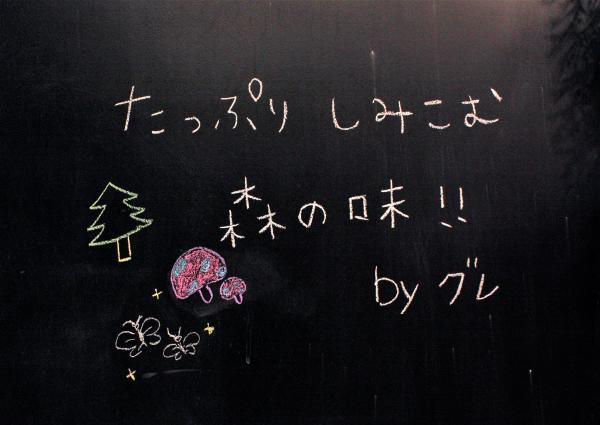 たっぷり しみこむ
森の味!!
by グレ